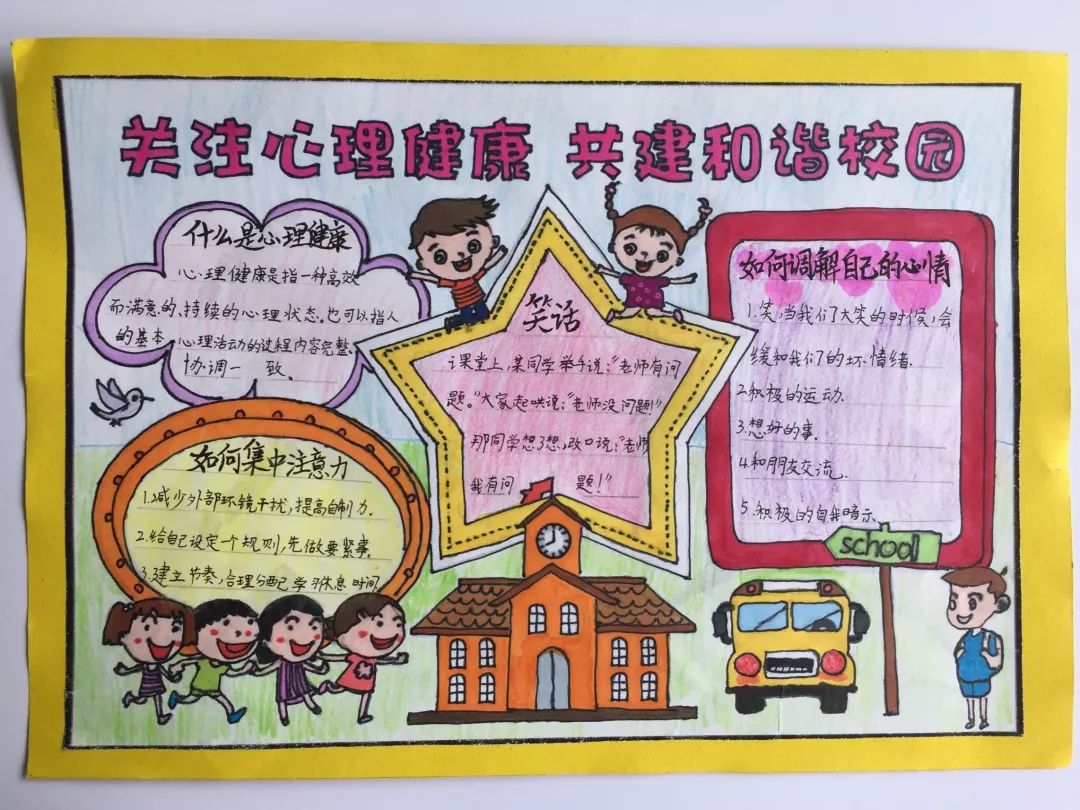 关注心理健康 共建和谐校园
什么是心理健康
心理健康是指一种高效
而满意的、持续的心理状态。也可以指人
的基本心理活动的过程内容完整、
协调一致。
笑话
课堂上,某同学举手说:“老师有问
题。”大家起哄说:“老师没问题!”
那同学想了想,改口说:“老师
我有问题!”
如何调解自己的心情
1.笑,当我们大笑的时候,会
缓和我们的坏情绪.
2.积极的运动.
3.想好的事.
4.和朋友交流.
5.积极的自我暗示.
如何集中注意力
1.减少外部环镜干扰,提高自制力.
2.给自己设定一个规则,先做要紧事.
3.建立节奏,合理分配学习休息时间
school